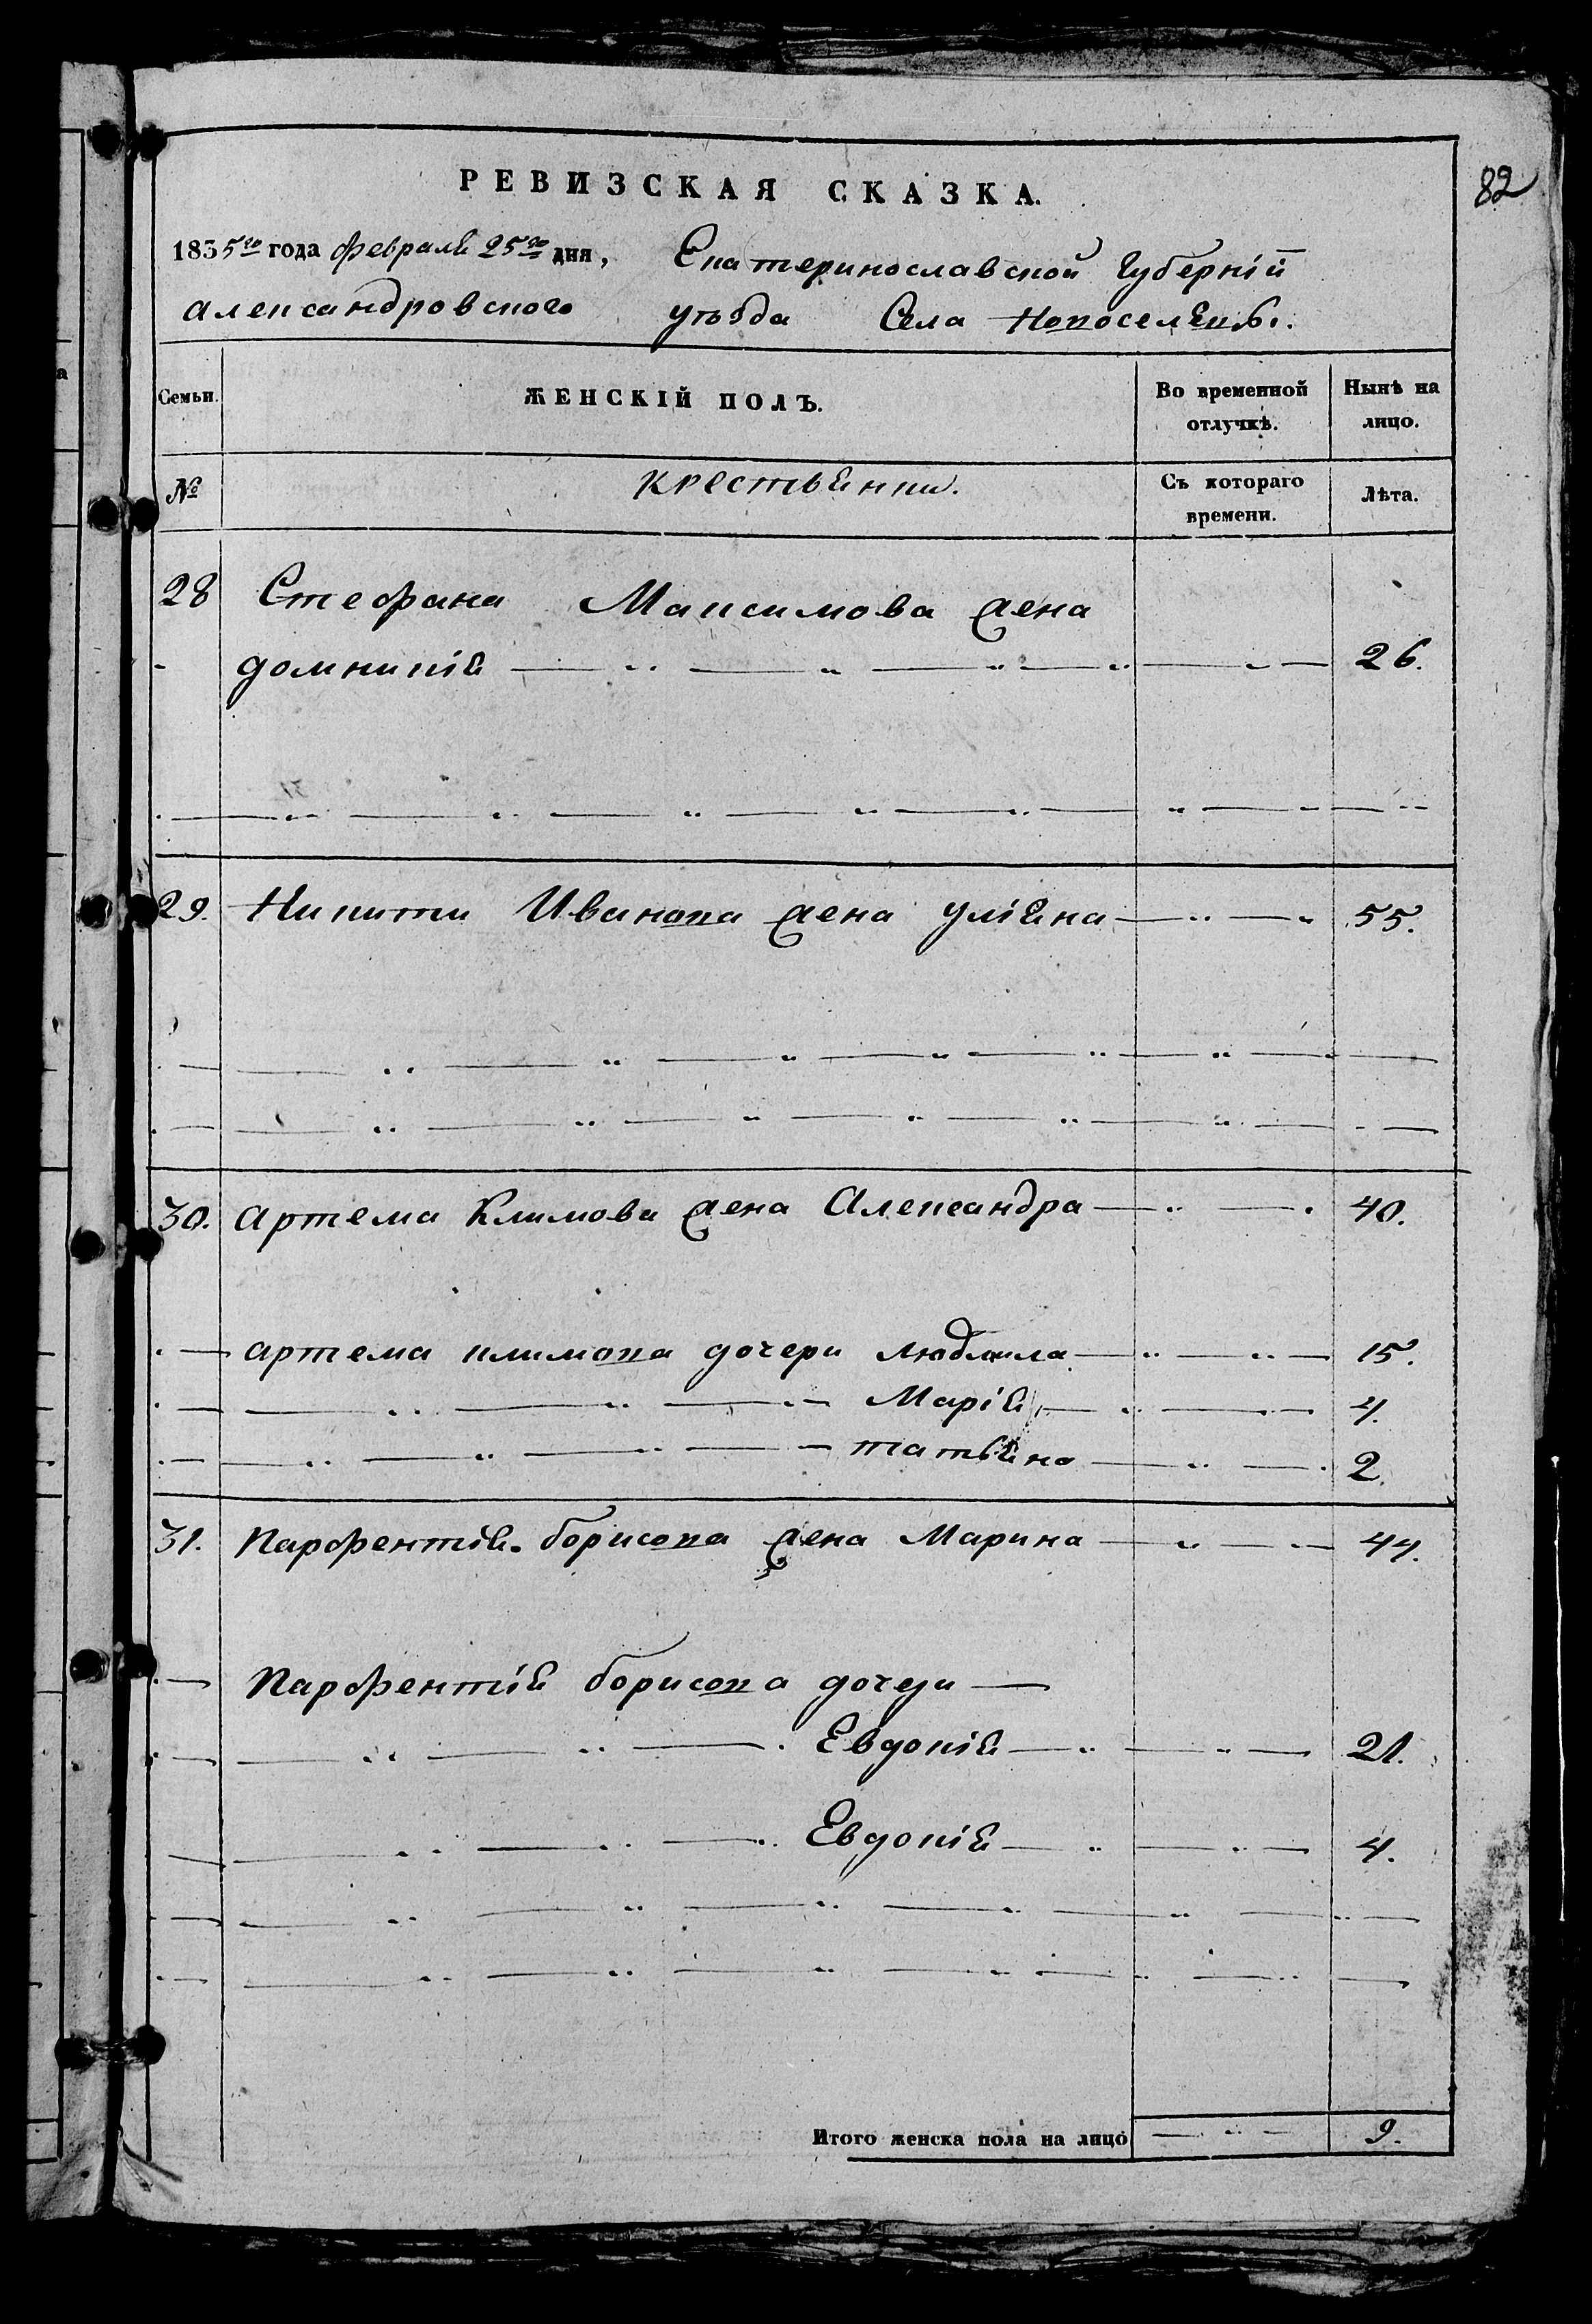 82
РЕВИЗСКАЯ СКАЗКА.
1835го года февраля 25го дня, Екатеринославской Губерніи
Александровского уѣзда Села Новоселекъ.
Семьи. ЖЕНСКІЙ ПОЛЪ. Во временной отлучкѣ. Нынѣ на лицо.
№ крестьянки. Съ котораго времени. Лѣта.
28 Стефана Максимова жена
домникія 26.
29. Никити Иванова жена уліяна 55.
30. артема Климова жена Александра 40.
артема климова дочери людмила 15.
Марія 4.
татьяна 2.
31. Парфентія борисова жена Марина 44.
Парфентія борисова дочери
Евдокія 21.
Евдокія 4.
Итого женска пола на лицо 9.